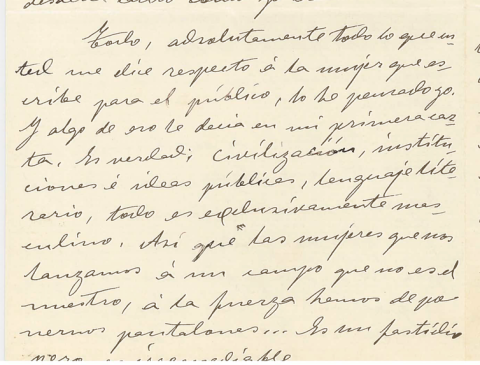 Todo, absolutamente todo lo que us-
ted me dice respecto á la mujer que es-
cribe para el público, lo he pensado yo.
Y algo de eso le decía en mi primera car-
ta. Es verdad; civilización, institu-
ciones é ideas públicas, lenguaje lite-
rario, todo es exclusivamente mas-
culino. Así que las mujeres que nos
lanzamos á un campo que no es el
nuestro, á la fuerza hemos de po-
nernos pantalones... Es un fastidio
pero irremediable